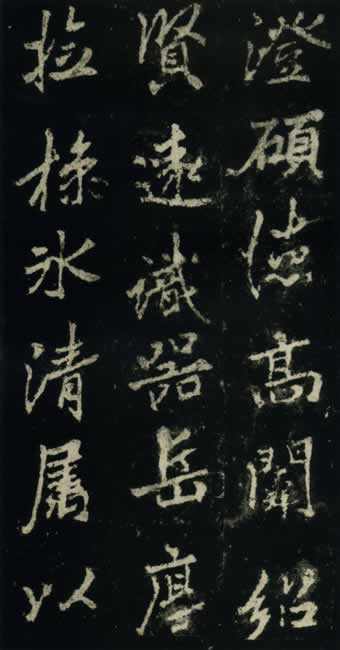 澄碩德高闡紹
賢遠識器岳厚
撿操冰清属以